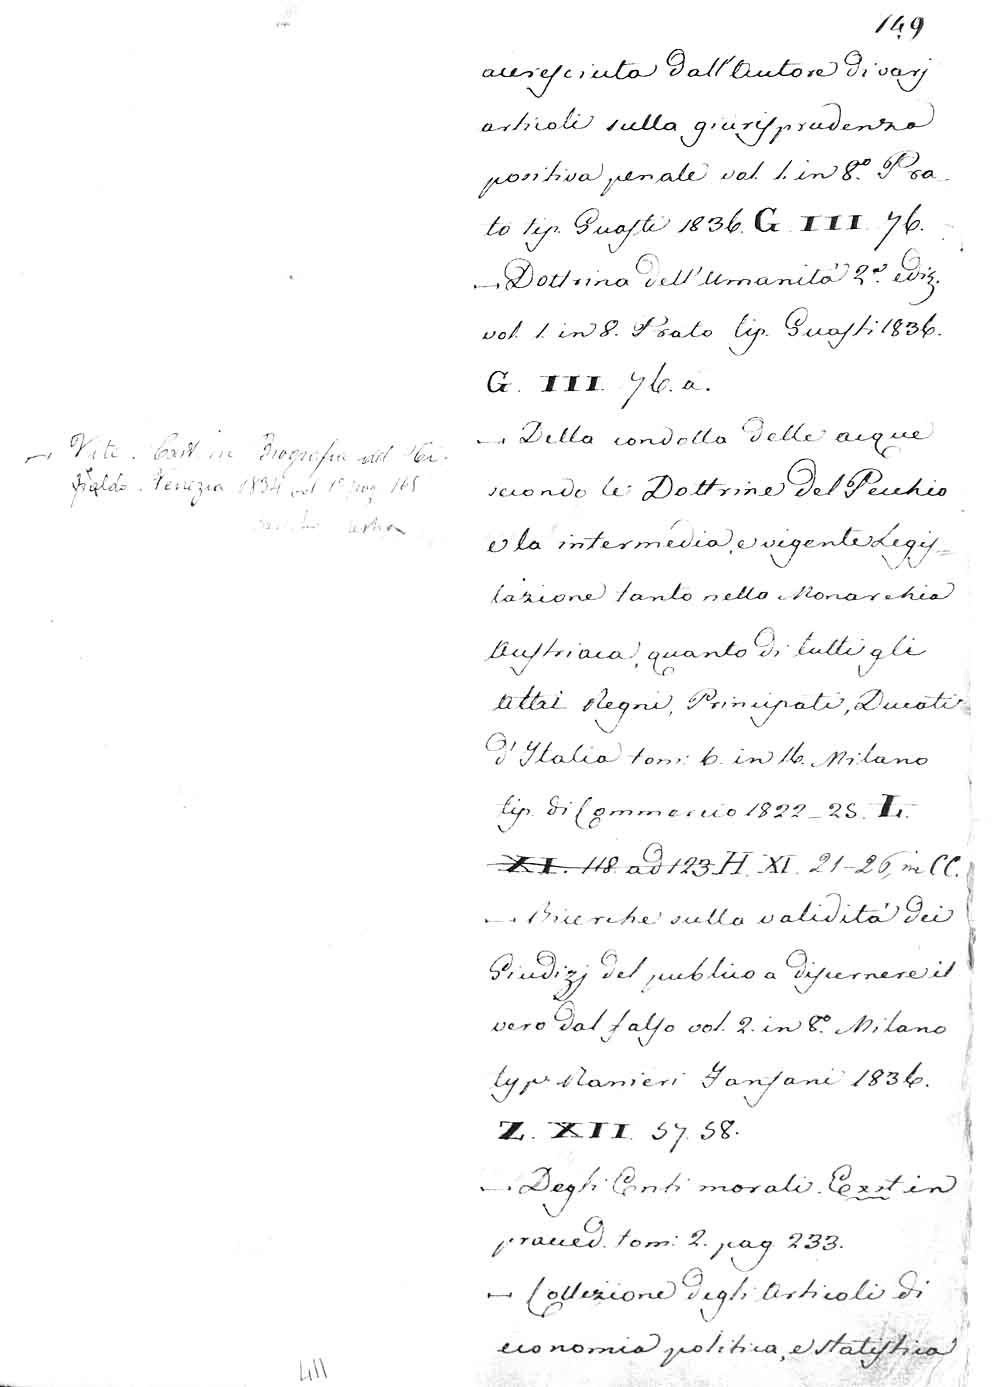 149
accresciuta dall'Autore di varj
articoli sulla giurisprudenza
positiva penale vol. 1. in 8.º Pra
to tip. Guasti 1836. G. III. 76.
— Dottrina dell'Umanità 2.ª ediz.
vol. 1. in 8. Prato tip. Guasti 1836.
G. III. 76. a.
— Della condotta delle acque
secondo le Dottrine del Pecchio
e la intermedia, e vigente Legis=
lazione tanto nella Monarchia
Austriaca, quanto di tutti gli
altri Regni, Principati, Ducati
d'Italia tom: 6. in 16. Milano
tip. di Commercio 1822-25. L.
XI. 118. ad 123 H. XI. 21-26, in CC.
— Ricerche sulla validità dei
Giudizj del publico a discernere il
vero dal falso vol. 2. in 8.º Milano
typ. Ranieri Fanfani 1836.
Z. XII. 57. 58.
— Degli Enti morali. Exst in
praeced. tom: 2. pag 233.
— Collezione degli Articoli di
economia politica, e statistica
— Vita. Exst. in Biografia del Ti-
paldo. Venezia 1834 vol 1º pag 165
411